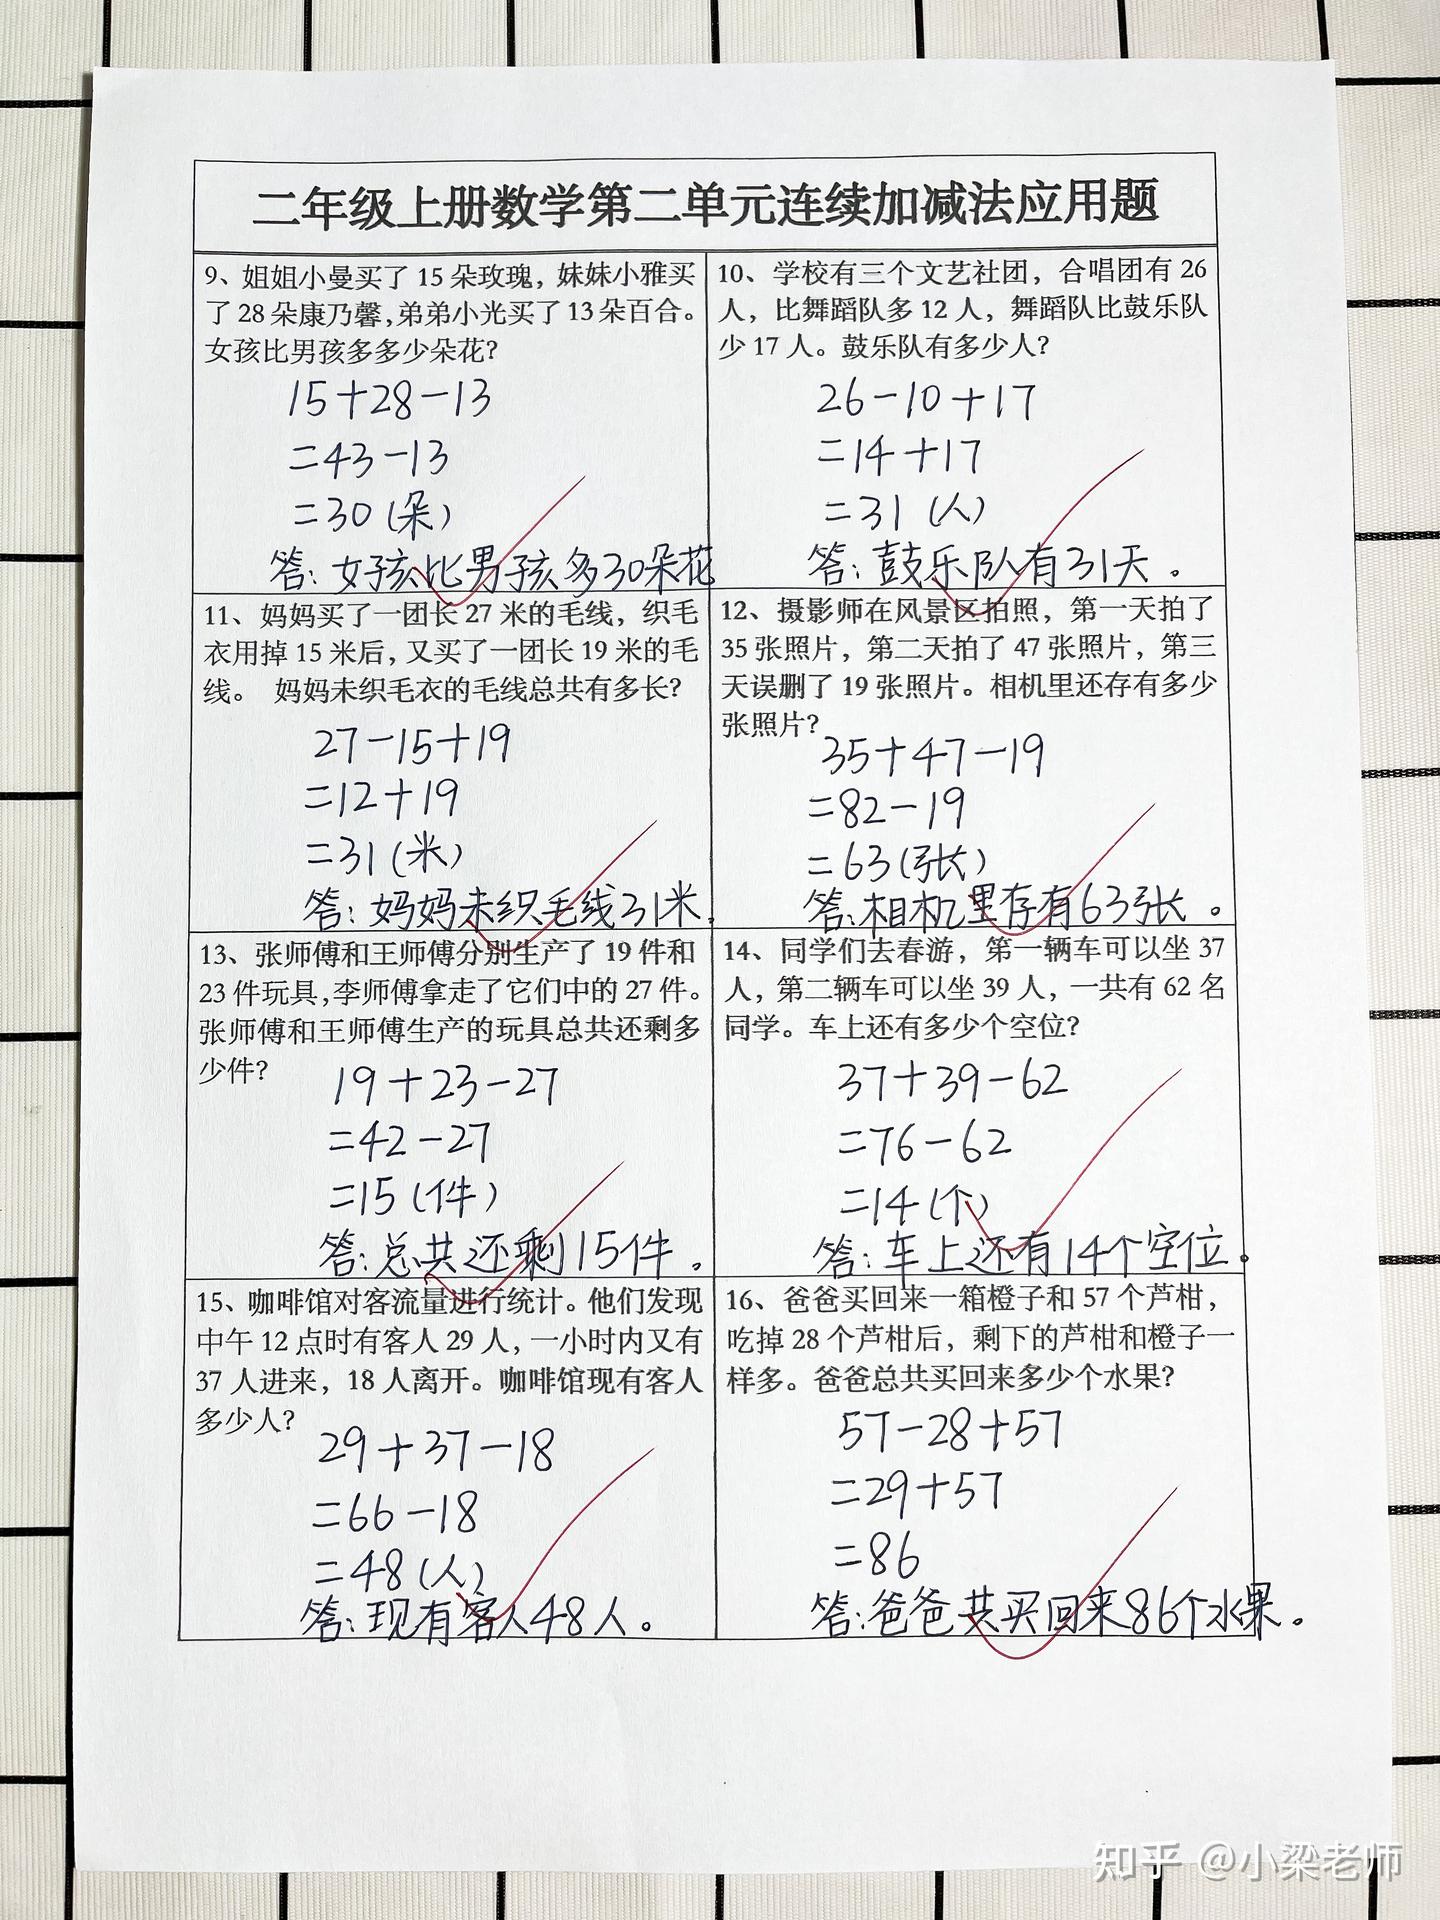 二年级上册数学第二单元连续加减法应用题
9、姐姐小曼买了 15 朵玫瑰，妹妹小雅买
了 28 朵康乃馨，弟弟小光买了 13 朵百合。
女孩比男孩多多少朵花？
15+28-13
=43-13
=30（朵）
答：女孩比男孩多30朵花
10、学校有三个文艺社团，合唱团有 26
人，比舞蹈队多 12 人，舞蹈队比鼓乐队
少 17 人。鼓乐队有多少人？
26-10+17
=14+17
=31（人）
答：鼓乐队有31天。
11、妈妈买了一团长 27 米的毛线，织毛
衣用掉 15 米后，又买了一团长 19 米的毛
线。 妈妈未织毛衣的毛线总共有多长？
27-15+19
=12+19
=31（米）
答：妈妈未织毛线31米.
12、摄影师在风景区拍照，第一天拍了
35 张照片，第二天拍了 47 张照片，第三
天误删了 19 张照片。相机里还存有多少
张照片？
35+47-19
=82-19
=63（张）
答：相机里存有63张。
13、张师傅和王师傅分别生产了 19 件和
23 件玩具，李师傅拿走了它们中的 27 件。
张师傅和王师傅生产的玩具总共还剩多
少件？
19+23-27
=42-27
=15（件）
答：总共还剩15件。
14、同学们去春游，第一辆车可以坐 37
人，第二辆车可以坐 39 人，一共有 62 名
同学。车上还有多少个空位？
37+39-62
=76-62
=14（个）
答：车上还有14个空位。
15、咖啡馆对客流量进行统计。他们发现
中午 12 点时有客人 29 人，一小时内又有
37 人进来，18 人离开。咖啡馆现有客人
多少人？
29+37-18
=66-18
=48（人）
答：现有客人48人。
16、爸爸买回来一箱橙子和 57 个芦柑，
吃掉 28 个芦柑后，剩下的芦柑和橙子一
样多。爸爸总共买回来多少个水果？
57-28+57
=29+57
=86
答：爸爸共买回来86个水果。
知乎 @小梁老师